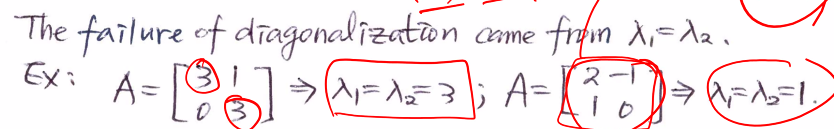 The failure of diagonalization came from λ₁=λ₂.
Ex: A=[3 1; 0 3] ⇒ λ₁=λ₂=3 ; A=[2 -1; 1 0] ⇒ λ₁=λ₂=1.